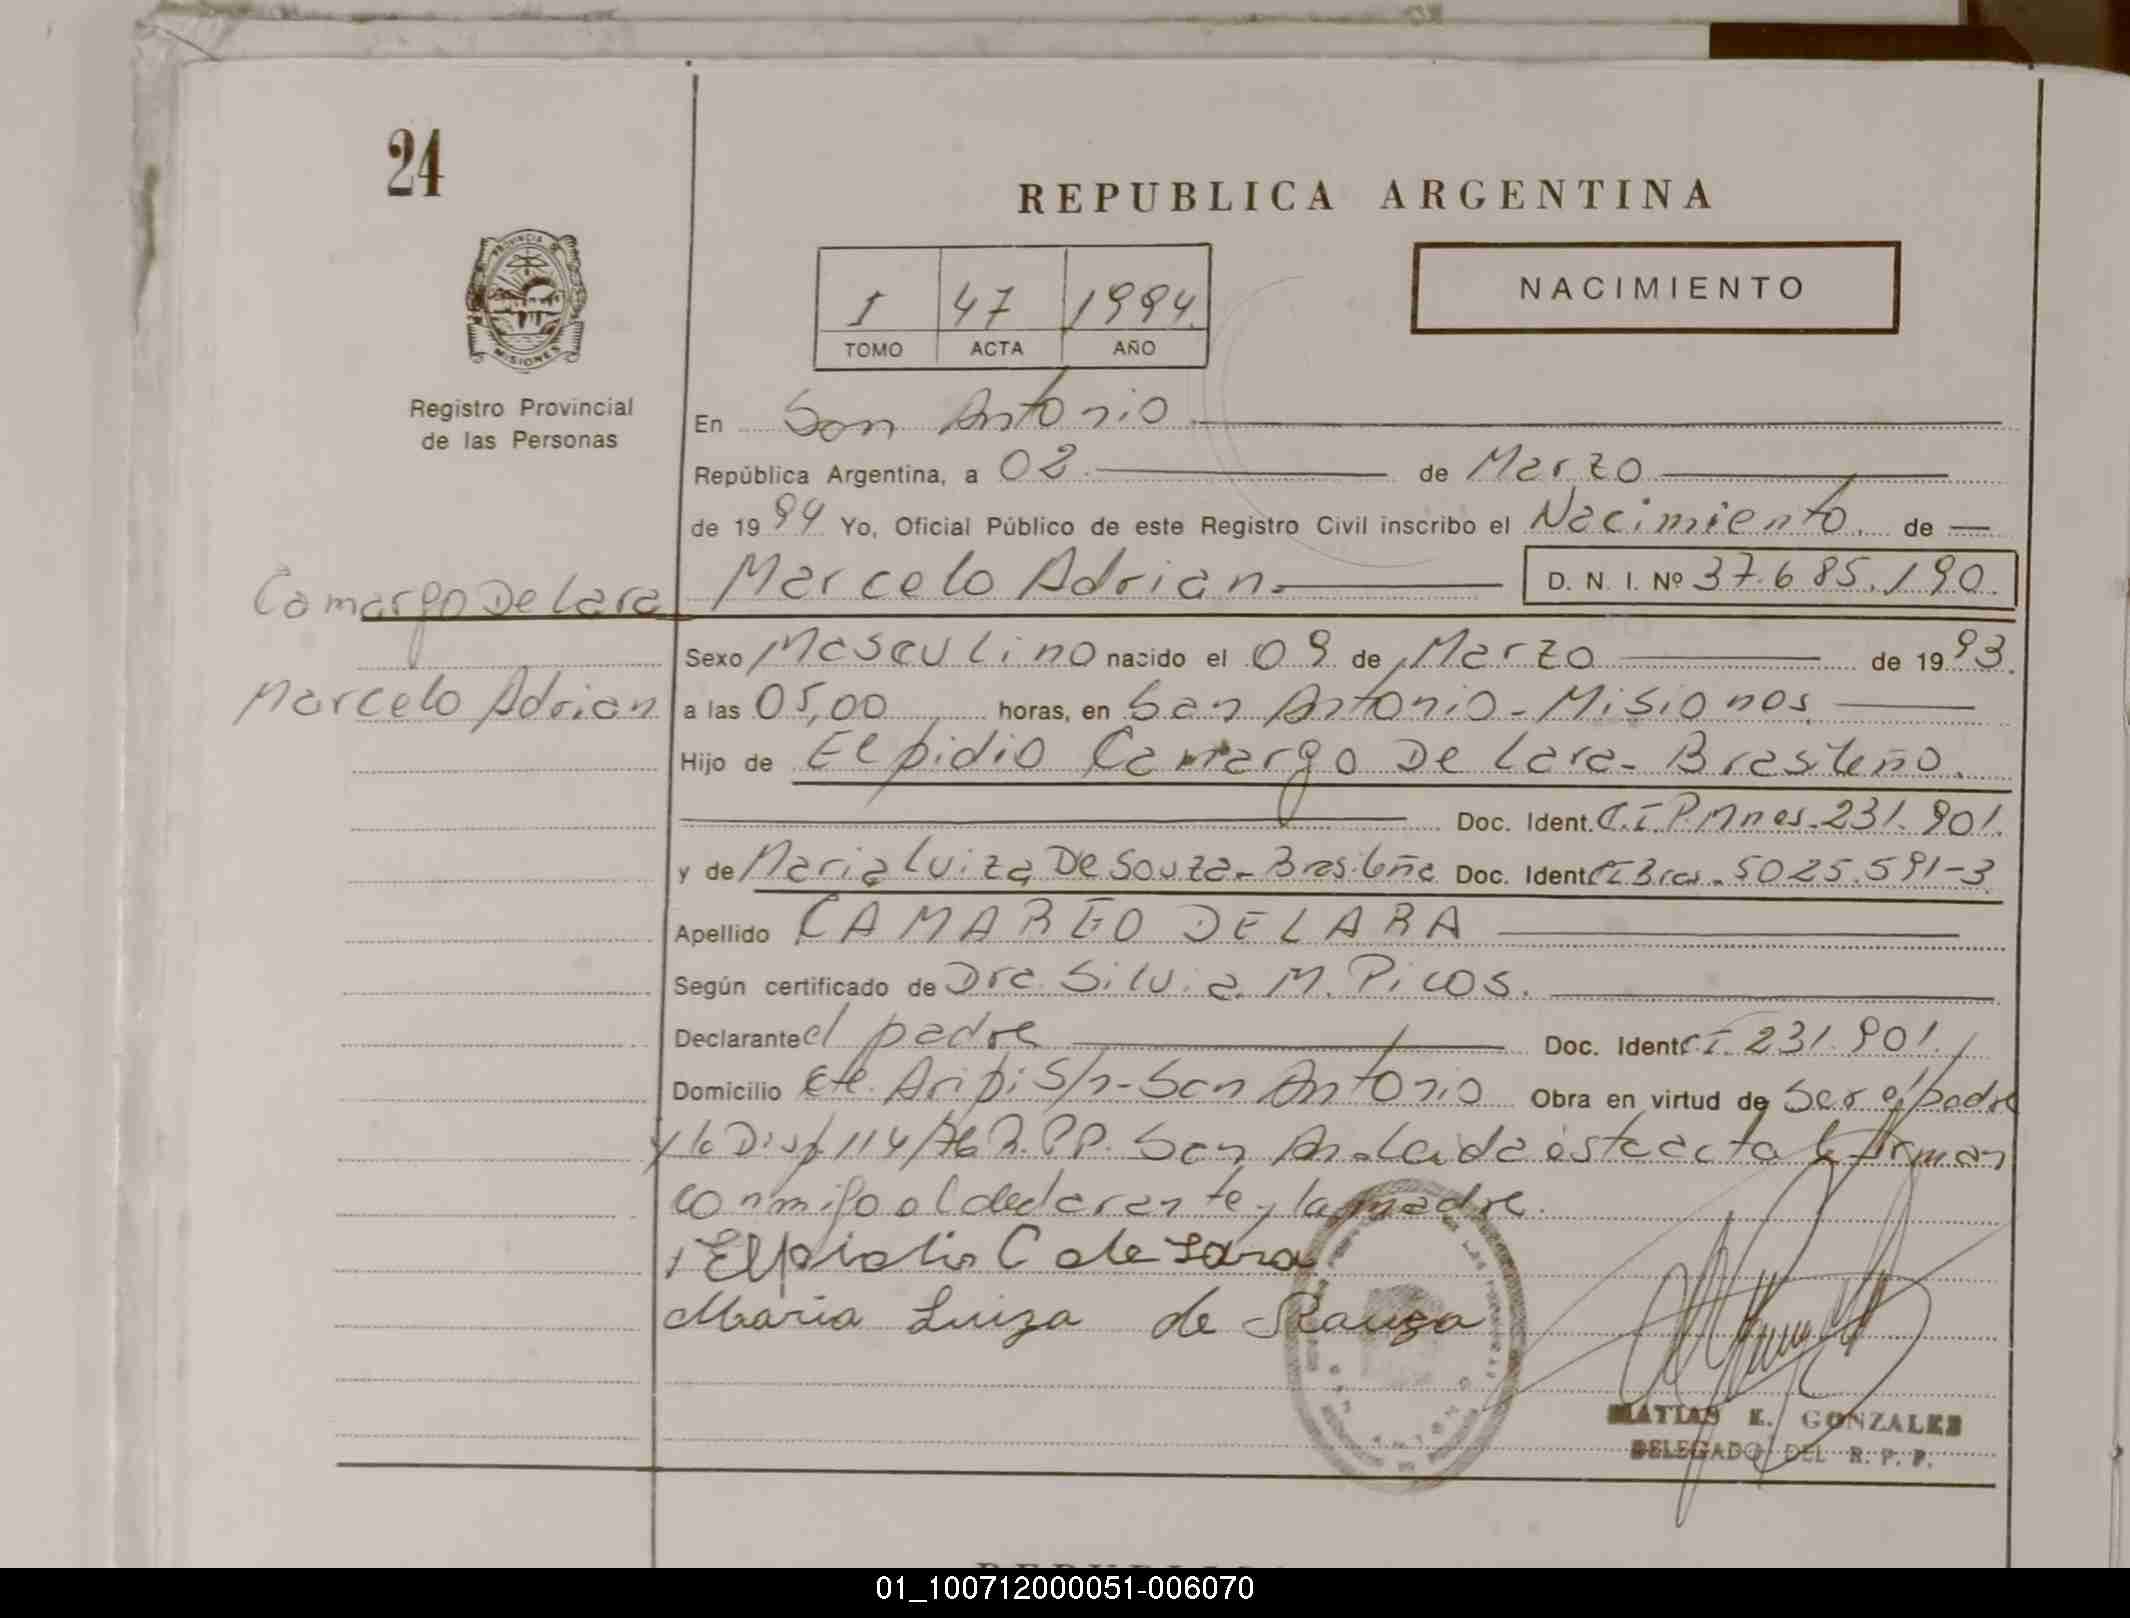 24
REPUBLICA ARGENTINA
PROVINCIA DE MISIONES
I 47 1994
TOMO ACTA AÑO
NACIMIENTO
Registro Provincial
de las Personas
En San Antonio
República Argentina, a 02 de Marzo
de 1994 Yo, Oficial Público de este Registro Civil inscribo el Nacimiento de
Camargo De Lara
Marcelo Adrian
Marcelo Adrian D. N. I. Nº 37.685.190.
Sexo Masculino nacido el 09 de Marzo de 1993.
a las 05,00 horas, en San Antonio - Misiones
Hijo de Elpidio Camargo De Lara - Brasileño.
Doc. Ident. C.I.P.Mnes. 231.901.
y de Maria Luiza De Souza - Brasileña Doc. Ident. CI Bras. 5025.591-3
Apellido CAMARGO DE LARA
Según certificado de Dra. Silvia M. Picos.
Declarante el padre Doc. Ident. C.I. 231.901.
Domicilio Cte. Aripi S/n - San Antonio Obra en virtud de ser el padre
y la Disp. 114/76 R.P.P. San An. Leida esta acta la firman
conmigo el declarante y la madre.
Elpidio C de Lara
Maria Luiza de Souza
MATIAS E. GONZALES
DELEGADO DEL R. P. P.
01_100712000051-006070